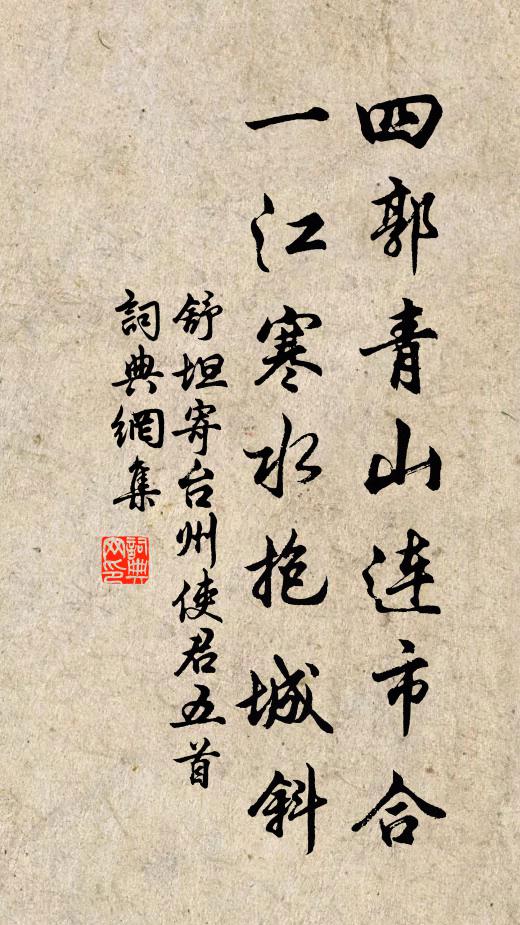 四郭青山连市合
一江寒水抱城斜
舒坦寄台州使君五首
詞典網集
詞典网印